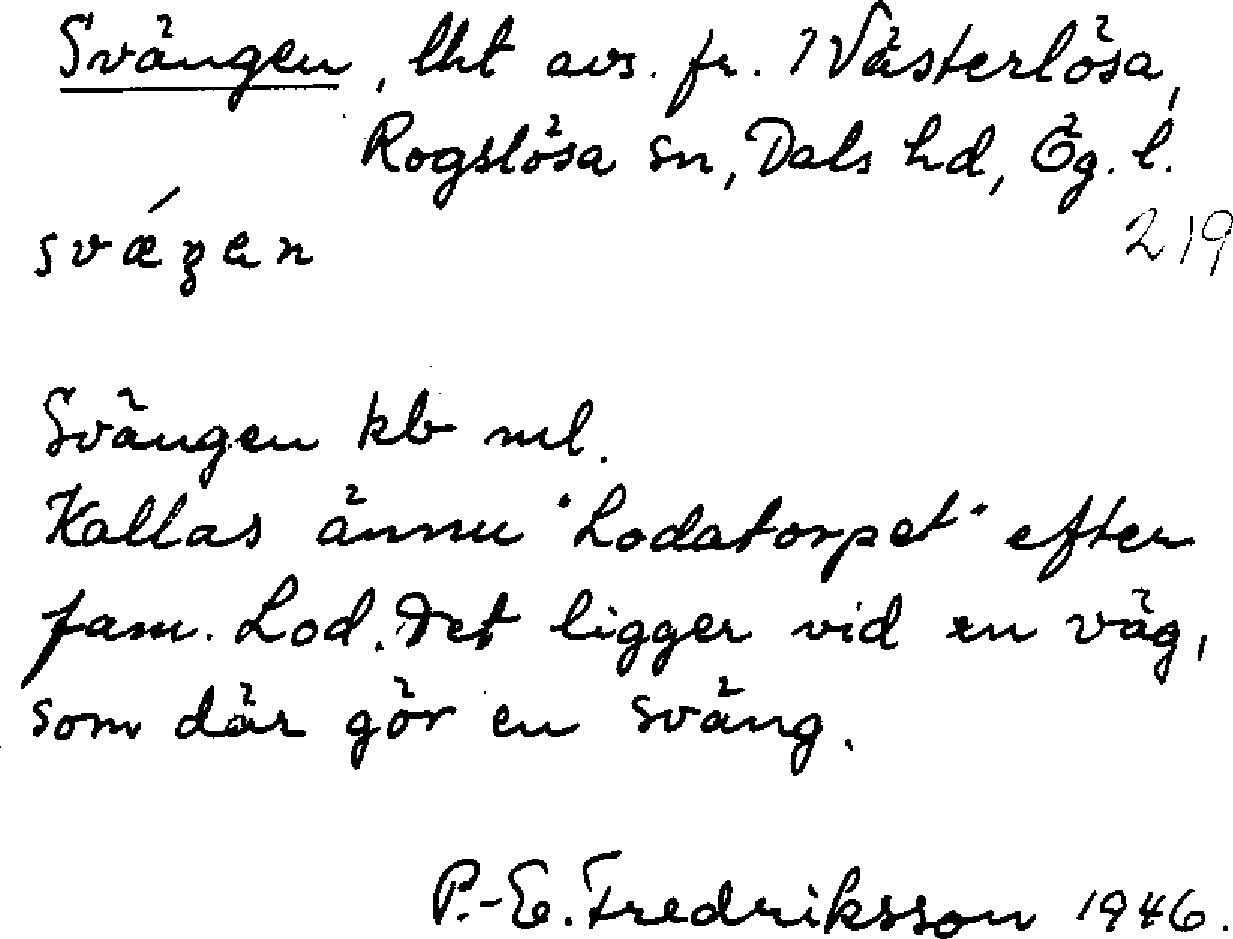 Svängen, lht avs. fr. 1 Västerlösa,
Rogslösa sn, Dals hd, Ög. l.
219
sváŋen
Svängen kb ml.
Kallas ännu "Lodatorpet" efter
fam. Lod. Det ligger vid en väg,
som där gör en sväng.
P.-E. Fredriksson 1946.